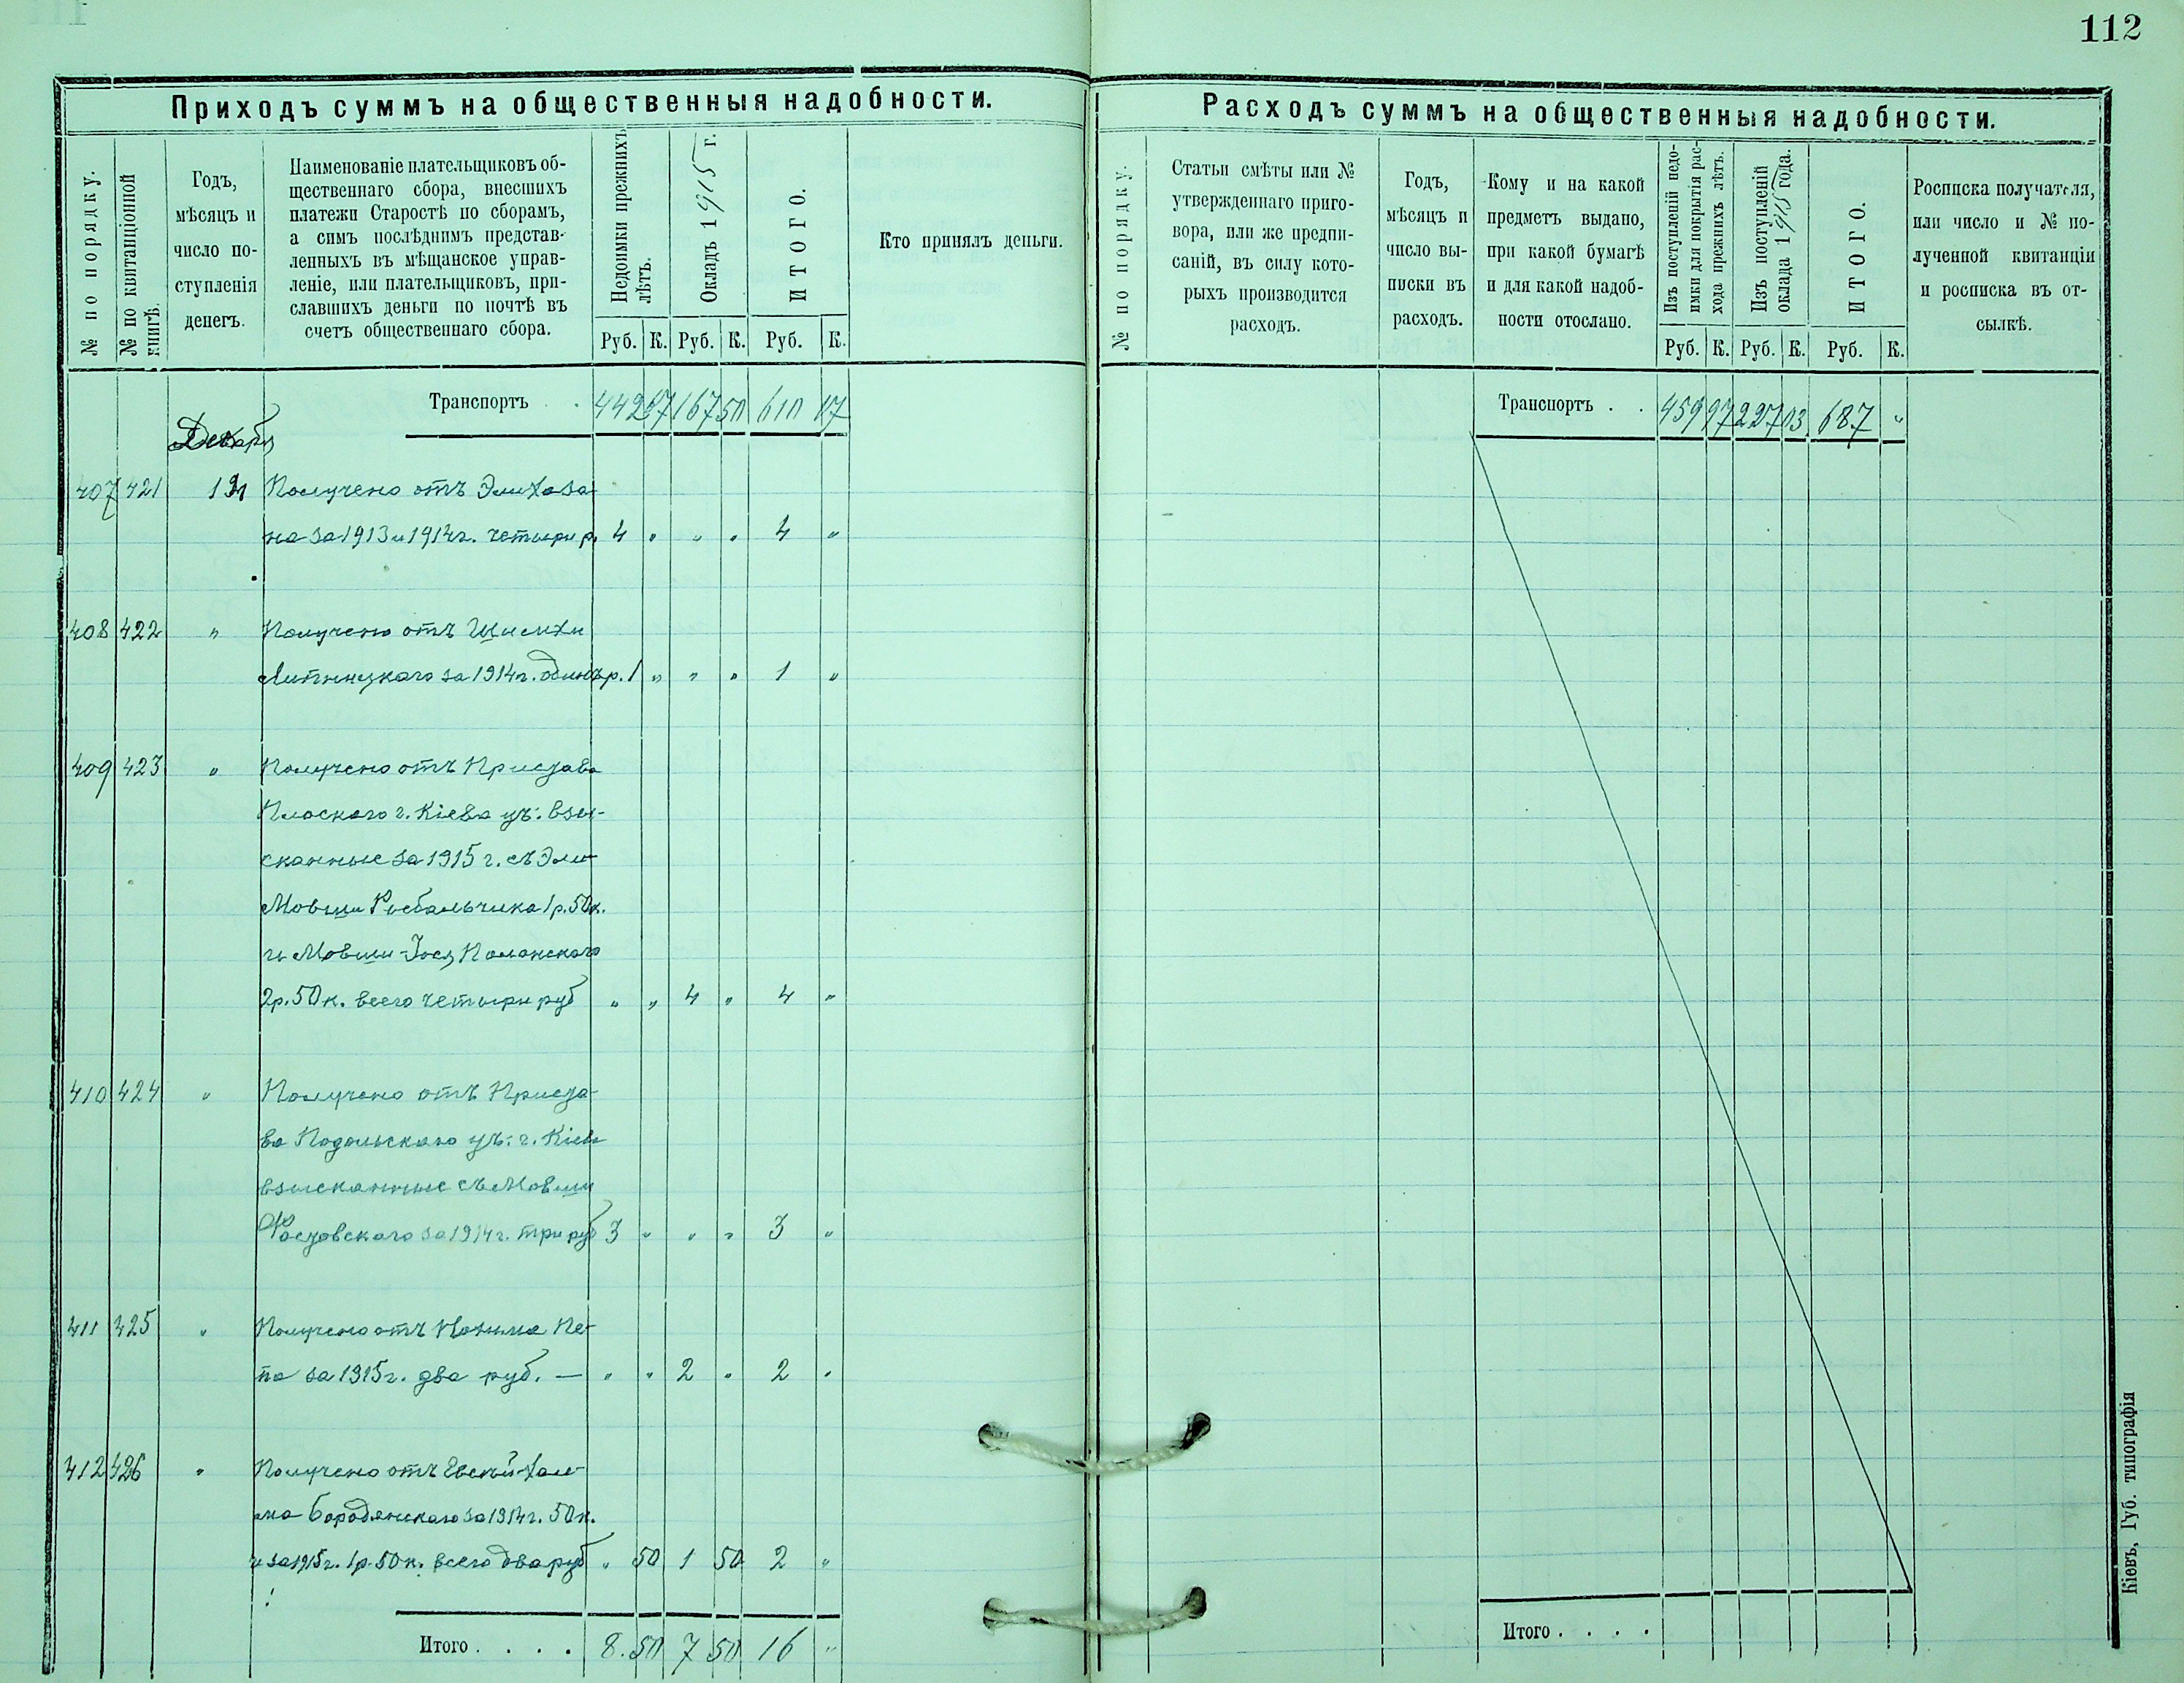 112
Приходъ суммъ на общественныя надобности.
№ по порядку.
№ по квитанціонной
книгѣ.
Годъ,
мѣсяцъ и
число по-
ступленія
денегъ.
Наименованіе плательщиковъ об-
щественнаго сбора, внесшихъ
платежи Старостѣ по сборамъ,
а симъ послѣднимъ представ-
ленныхъ въ мѣщанское управ-
леніе, или плательщиковъ, при-
славшихъ деньги по почтѣ въ
счетъ общественнаго сбора.
Недоимки прежнихъ
лѣтъ.
Окладъ 1915 г.
ИТОГО.
Руб. К. Руб. К. Руб. К.
Кто принялъ деньги.
Транспортъ . . 442 67 167 50 610 17
Декабря
407 421 Получено отъ
на за 1913 и 1914 г. четыри р. 4 " " " 4 "
408 422 " Получено отъ
за 1914 г. одинъ р. 1 " " " 1 "
409 423 " Получено отъ Пристава
Плоскаго г. Кіева уч: взы-
сканные за 1915 г. съ Эли
Мовши 1 р. 50 к.
и Мовши-Іося Полонского
2 р. 50 к. всего четыри руб " " 4 " 4 "
410 424 " Получено отъ Приста-
ва Подольскаго уч: г. Кіева
взысканные съ Мовши
за 1914 г. три руб 3 " " " 3 "
411 425 " Получено отъ
за 1915 г. два руб. — " " 2 " 2 "
412 426 " Получено отъ
Бородянскаго за 1914 г. 50 к.
и за 1915 г. 1 р. 50 к. всего два руб " 50 1 50 2 "
Итого . . . . 8 50 7 50 16 "
Расходъ суммъ на общественныя надобности.
№ по порядку.
Статьи смѣты или №
утвержденнаго приго-
вора, или же предпи-
саній, въ силу кото-
рыхъ производится
расходъ.
Годъ,
мѣсяцъ и
число вы-
писки въ
расходъ.
Кому и на какой
предметъ выдано,
при какой бумагѣ
и для какой надоб-
ности отослано.
Изъ поступленій недо-
имки для покрытія рас-
хода прежнихъ лѣтъ.
Изъ поступленій
оклада 1915 года.
ИТОГО.
Руб. К. Руб. К. Руб. К.
Росписка получателя,
или число и № по-
лученной квитанціи
и росписка въ от-
сылкѣ.
Транспортъ . . 459 97 227 03 687 "
Итого . . . .
Кіевъ, Губ. типографія